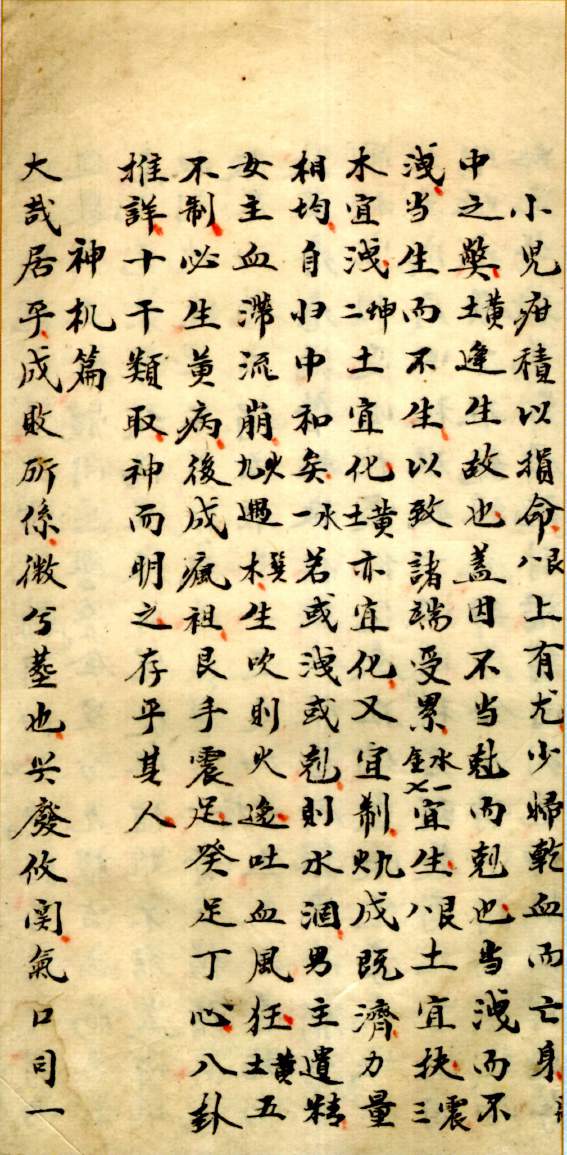 小児疳積以損命八艮上有尤少婦乾血而亡身
中之弊土黄逢生故也盖因不当尅而剋也当洩而不
洩当生而不生以致諸端受累金水七一宜生八艮土宜扶三震
木宜洩二坤土宜化土黄亦宜化又宜制火九成既濟力量
相均自归中和矣一水若或洩或剋則水涸男主遺精
女主血滯流崩九火遇木巽生吹則火逸吐血風狂土黄五
不制必生黄病後成瘋祖艮手震足癸足丁心八卦
推詳十干類取神而明之存乎其人
神机篇
大哉居乎成敗所係微兮墓也兴廢攸関氣口司一